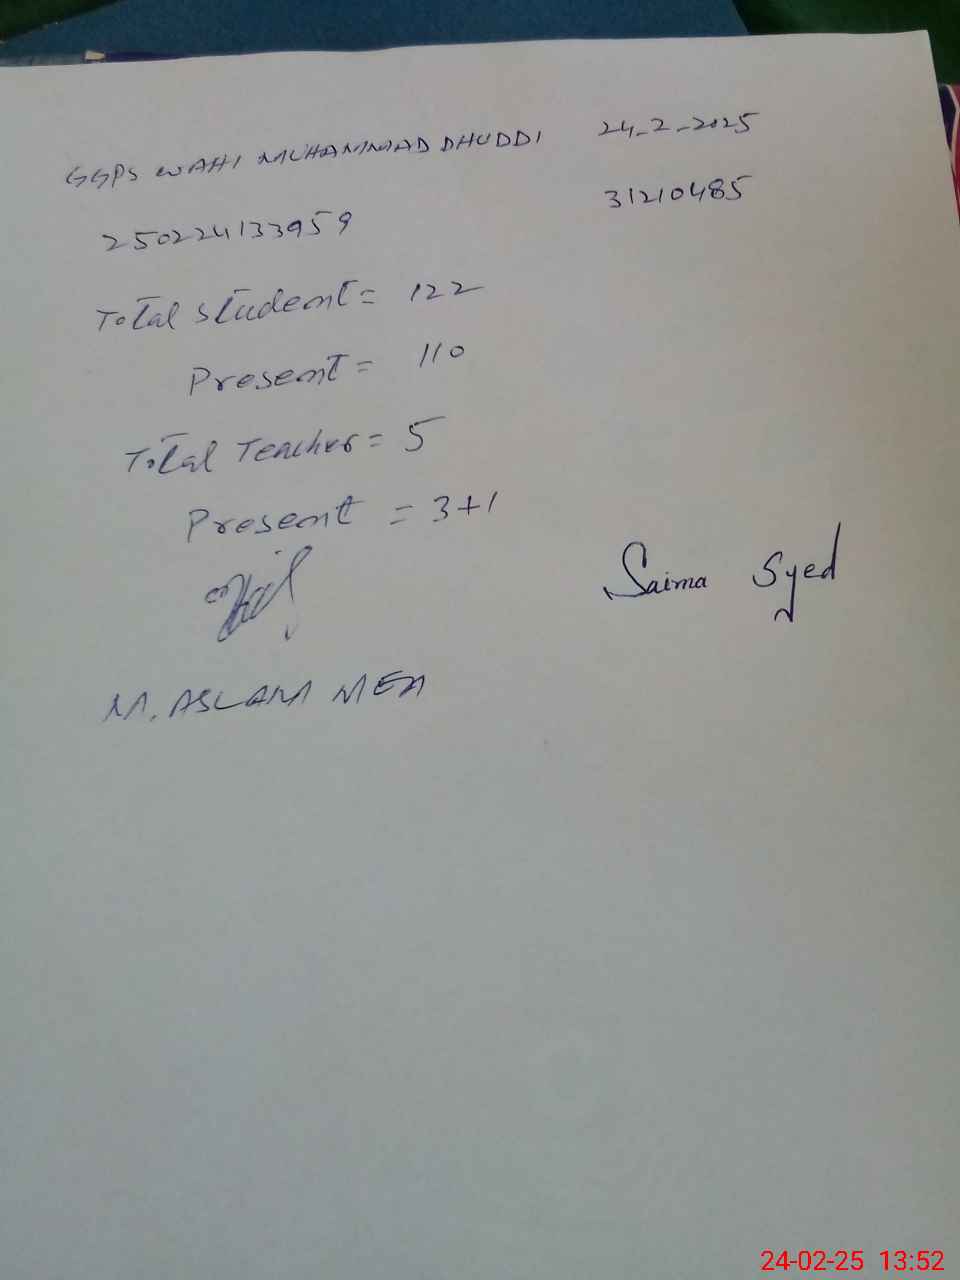 GGPS WAHI MUHAMMAD DHUDDI 24-2-2025
250224133959 31210485
Total student = 122
Present = 110
Total Teacher = 5
Present = 3+1
Saima Syed
M. ASLAM MEA
24-02-25 13:52